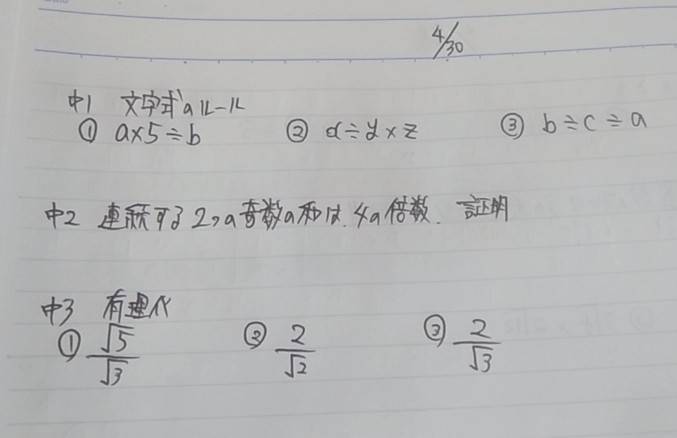 4/30
中1 文字式のルール
① a×5÷b ② x÷y×z ③ b÷c÷a
中2 連続する2つの奇数の和は、4の倍数. 証明
中3 有理化
① √5/√3 ② 2/√2 ③ 2/√3